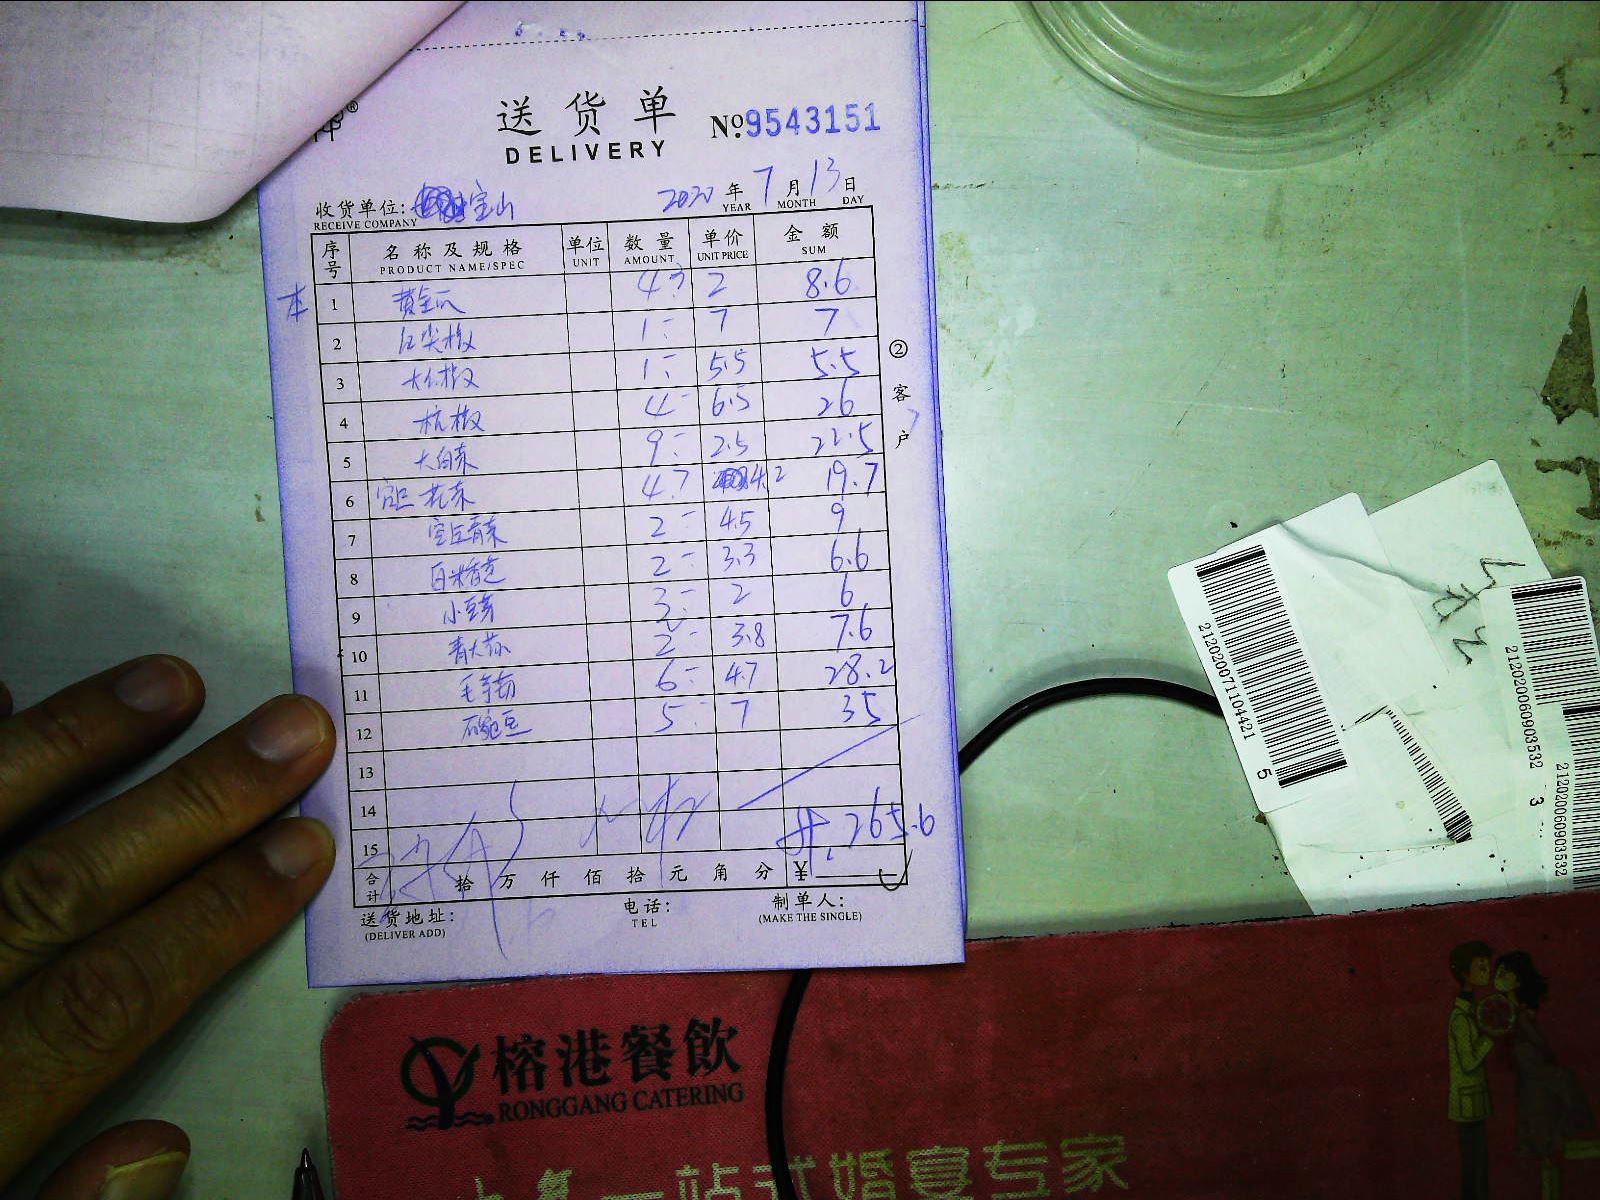 送货单
DELIVERY
No.9543151
收货单位: 宝山 2020 年 7 月 13 日
RECEIVE COMPANY YEAR MONTH DAY
序号 名称及规格 单位 数量 单价 金额
PRODUCT NAME/SPEC UNIT AMOUNT UNIT PRICE SUM
本 1 黄金瓜 4.3 2 8.6
2 红尖椒 1- 7 7
3 大红椒 1- 5.5 5.5
4 杭椒 4- 6.5 26
5 大白菜 9- 2.5 22.5
6 花菜 4.7 4.2 19.7
7 青菜 2- 4.5 9
8 白米 2- 3.3 6.6
9 小豆芽 3- 2 6
10 青大 2- 3.8 7.6
11 毛 6- 4.7 28.2
12 豆 5- 7 35
13
14
15 265.6
合计 拾 万 仟 佰 拾 元 角 分 ¥
送货地址: 电话: 制单人:
(DELIVER ADD) TEL (MAKE THE SINGLE)
②客户
2120200711104421
5
212020060903532
3
212020060903532
榕港餐飲
RONGGANG CATERING
一站式婚宴专家